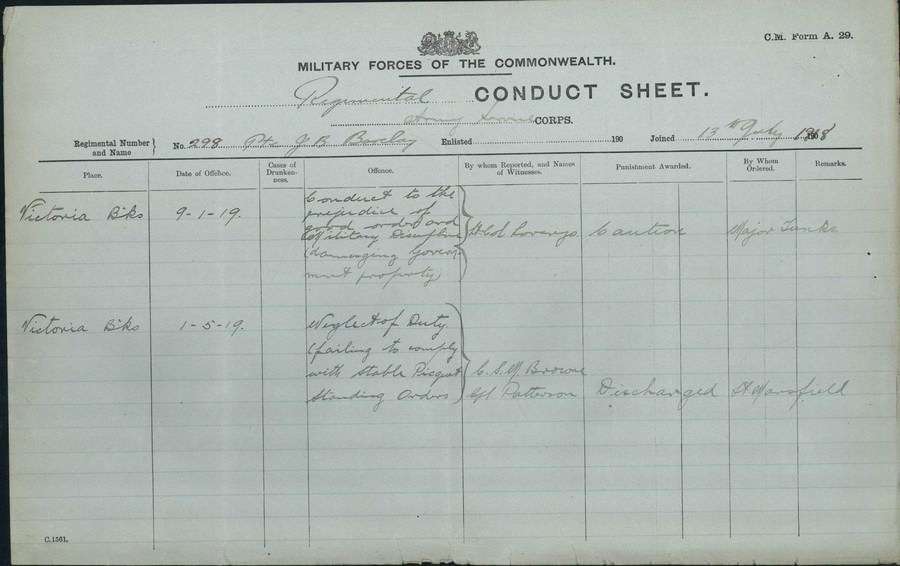 C.M. Form A. 29.
MILITARY FORCES OF THE COMMONWEALTH.
Regimental CONDUCT SHEET.
Army Service CORPS.
Regimental Number and Name No. 298 Pte J B Enlisted 190 Joined 13th July 1918
Place. Date of Offence. Cases of Drunkenness. Offence. By whom Reported, and Names of Witnesses. Punishment Awarded. By Whom Ordered. Remarks.
Victoria Bks 9-1-19. Conduct to the
prejudice of
good order and
Military Discipline Caution Major Tunks
(damaging Govern-
ment property)
Victoria Bks 1-5-19. Neglect of Duty
(failing to comply
with Stable Picquet C.S.M. Browne
Standing Orders Cpl Patterson Discharged
C.1561.